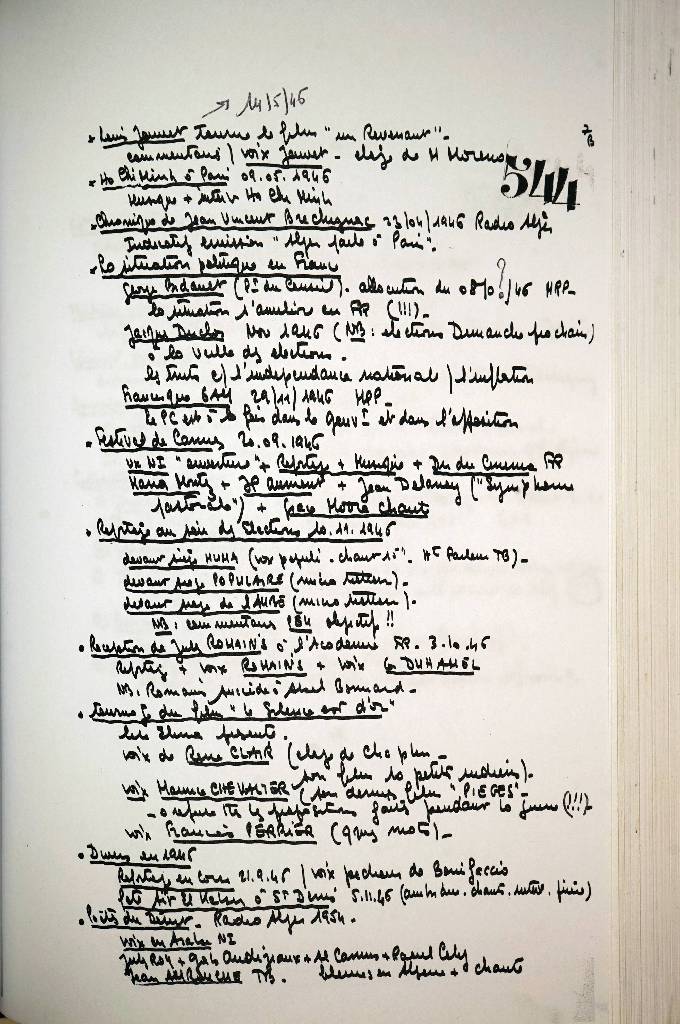 → 14/5/46
7/B
544
• Louis Jouvet tourne le film "un Revenant" -
commentaires / voix Jouvet - éloge de M Moreno
• Ho Chi Minh à Paris 09.05.1946
Musique + interv Ho Chi Minh
• Chronique de Jean Vincent Brechignac 23/04/1946 Radio Alger
Indicatif émission "Alger parle à Paris".
• La situation politique en France
George Bidault (Pt du Conseil). allocution du 08/0?/46 HPP-
la situation s'améliore en FR (!!!)-
Jacques Duclos Nov 1946 (NB: elections Dimanche prochain)
à la veille des elections.
les trusts c/ l'independance nationale / l'inflation
Francisque GAY 29/11/1946 HPP-
le PC est à la fois dans le gouvt et dans l'opposition
• Festival de Cannes 20.09.1946
vx NI "ouverture" + Reportage + Musique + Dir du Cinema FR
Maria Montez + JP Aumont + Jean Delannoy ("Symphonie
pastorale") + Grace Moore chante
• Reportage au soir des Elections 10.11.1946
devant siège HUMA (vox populi - chant 15". Ht Parleur TB)-
devant siege POPULAIRE (micro trottoir)-
devant siege de l'AUBE (micro trottoir)-
NB: commentaires PEU objectifs !!
• Reception de Jules ROMAINS à l'Academie FR- 3.10.46
Reportage + voix ROMAINS + voix G DUHAMEL
NB: Romains succède à Abel Bonnard-
• tournage du film "le Silence est d'or"
présent.
voix de René CLAIR (éloge de Chaplin -
son film 10 petits indiens)-
voix Maurice CHEVALIER (son dernier film "PIEGES"-
- a refusé ttes les propositions faites pendant la guerre (!!!)-
voix François PERRIER (qques mots)-
• Divers en 1946
Reportage en Corse 21.9.46 / voix pecheurs de Bonifaccio
Fete Aïd El Kebir à St Denis 5.11.46 (ambiance. chants. interv. prière)
• Poètes du Désert- Radio Alger 1954-
voix en Arabe NI
Jules Roy + Gab Audisio + A Camus +
Jean AMROUCHE TB- en Algerie + chants